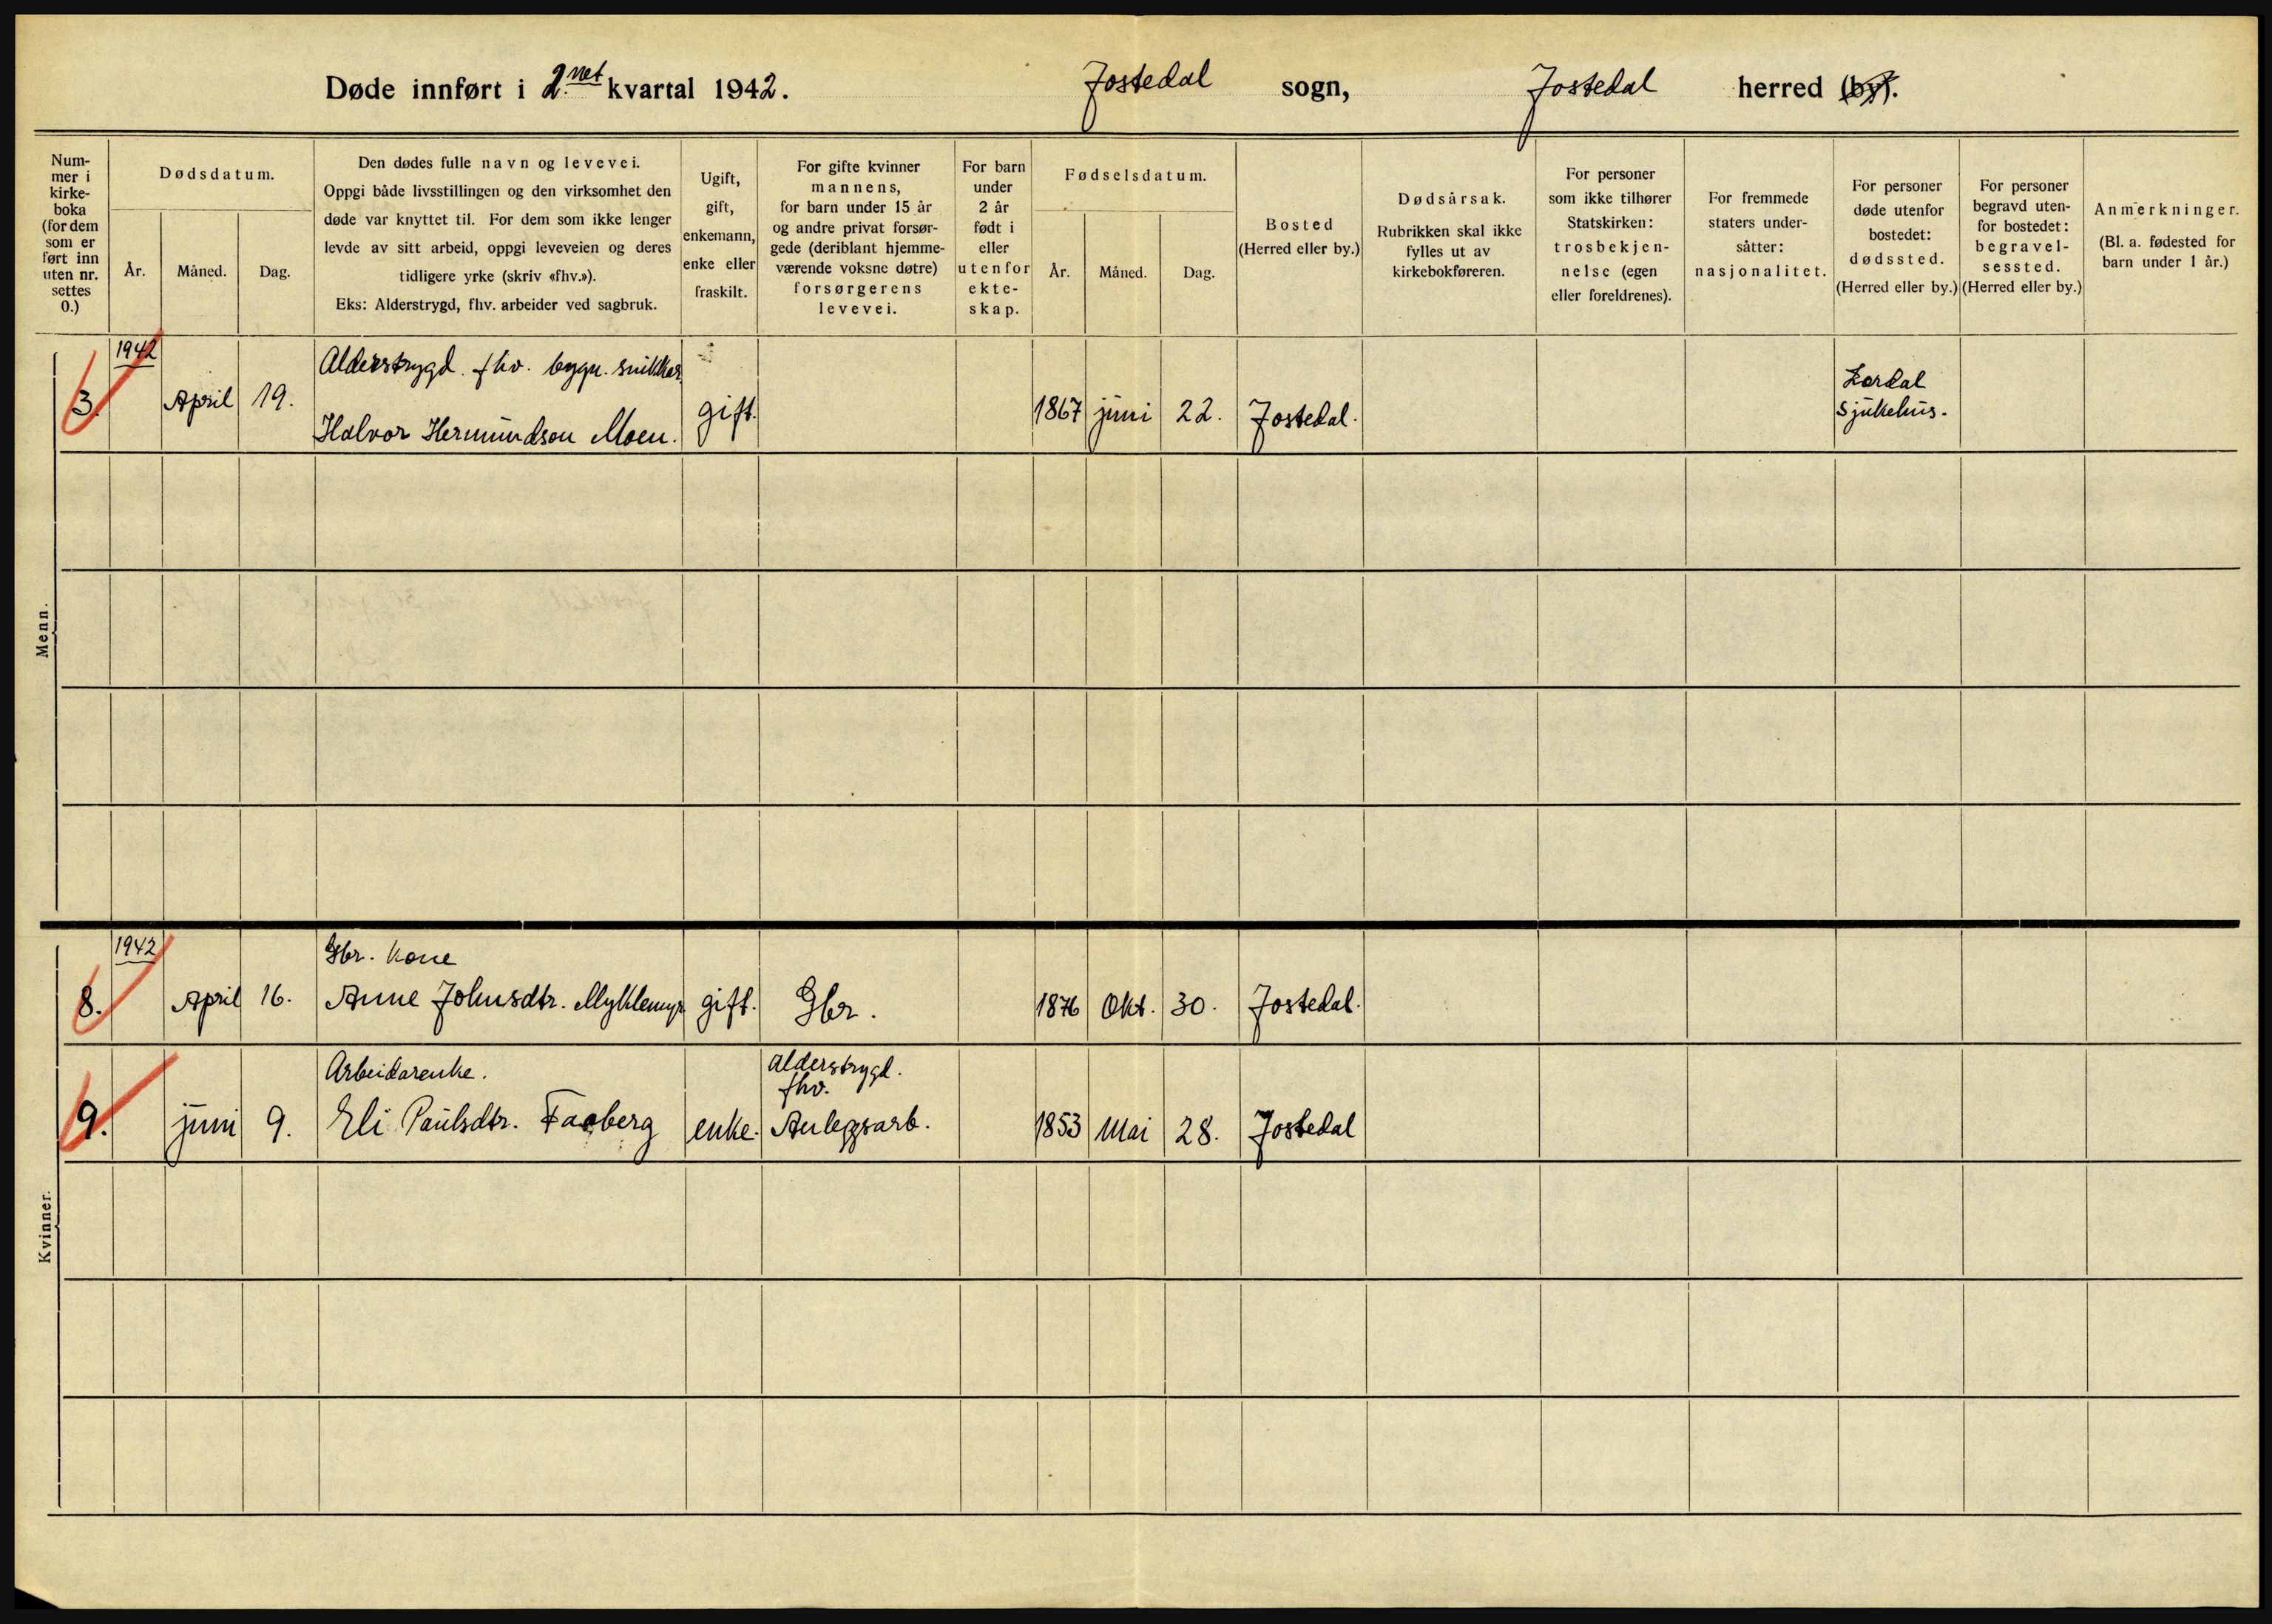 Døde innført i 2net kvartal 1942. Jostedal sogn, Jostedal herred (by).
Num-
mer i
kirke-
boka
(for dem
som er
ført inn
uten nr.
settes
0.)
Dødsdatum.
År. Måned. Dag.
Den dødes fulle navn og levevei.
Oppgi både livsstillingen og den virksomhet den
døde var knyttet til. For dem som ikke lenger
levde av sitt arbeid, oppgi leveveien og deres
tidligere yrke (skriv «fhv.»).
Eks: Alderstrygd, fhv. arbeider ved sagbruk.
Ugift,
gift,
enkemann,
enke eller
fraskilt.
For gifte kvinner
mannens,
for barn under 15 år
og andre privat forsør-
gede (deriblant hjemme-
værende voksne døtre)
forsørgerens
levevei.
For barn
under
2 år
født i
eller
utenfor
ekte-
skap.
Fødselsdatum.
År. Måned. Dag.
Bosted
(Herred eller by.)
Dødsårsak.
Rubrikken skal ikke
fylles ut av
kirkebokføreren.
For personer
som ikke tilhører
Statskirken:
trosbekjen-
nelse (egen
eller foreldrenes).
For fremmede
staters under-
såtter:
nasjonalitet.
For personer
døde utenfor
bostedet:
dødssted.
(Herred eller by.)
For personer
begravd uten-
for bostedet:
begravel-
sessted.
(Herred eller by.)
Anmerkninger.
(Bl. a. fødested for
barn under 1 år.)
Menn.
1942
Alderstrygd. fhv. bygn. snikkar
3. April 19. Halvor Hermundson Moen. gift. 1867 juni 22. Jostedal.
Lærdal
Sjukehus.
Kvinner.
1942
Gbr. kone
8. April 16. Anne Johnsdtr. Myklemyr gift. Gbr. 1876 Okt. 30. Jostedal.
Arbeidarenke.
Alderstrygd.
fhv.
9. juni 9. Eli Paulsdtr. Faaberg enke. Anleggsarb. 1853 Mai 28. Jostedal